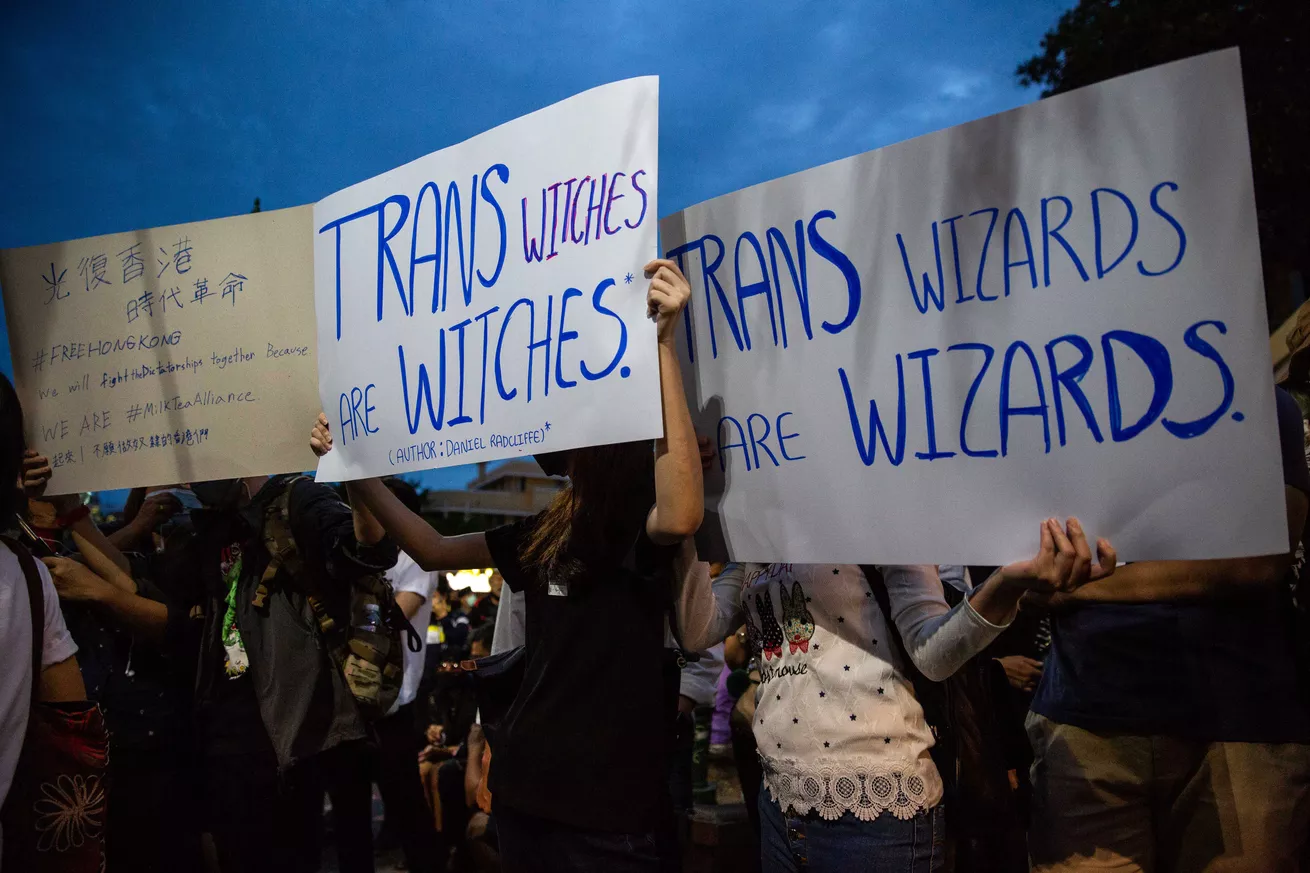 光復香港
時代革命
#FREEHONGKONG
We will fight the Dictatorships together Because
WE ARE #MilkTeaAlliance.
起來！不願做奴隸的香港們
TRANS WITCHES
ARE WITCHES.*
(AUTHOR: DANIEL RADCLIFFE)*
TRANS WIZARDS
ARE WIZARDS.